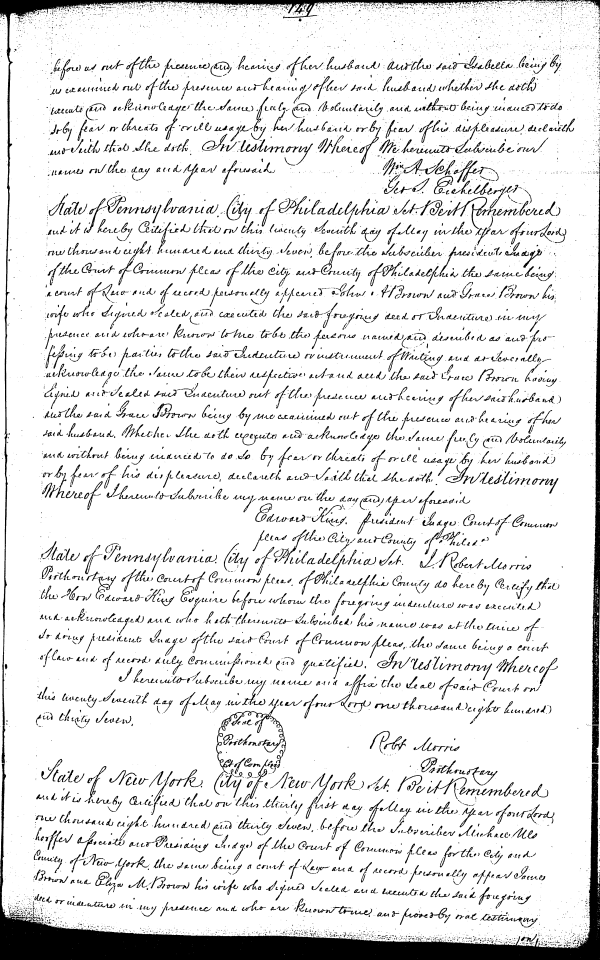 149
before us out of the presence and hearing of her husband and the said Isabella being by
us examined out of the presence and hearing of her said husband whether she doth
execute and acknowledge the same freely and voluntarily and without being induced to do
so by fear or threats of or ill usage by her husband or by fear of his displeasure, declareth
and saith that she doth. In testimony Whereof We hereunto Subscribe our
names on the day and year aforesaid
Wm A. Schaffer
Geo S. Eichelberger
State of Pennsylvania City of Philadelphia Sct. Be it Remembered
and it is hereby Certified that on this twenty seventh day of May in the year of our Lord
one thousand eight hundred and thirty Seven, before the Subscriber president Judge
of the Court of Common pleas of the city and County of Philadelphia the same being
a court of Law and of record personally appeared John A Brown and Grace Brown his
wife who Signed Sealed and executed the said foregoing deed or Indenture in my
presence and who are known to me to be the persons named and described as and pro-
fessing to be parties to the said Indenture or instrument of Writing and do Severally
acknowledge the Same to be their respective act and deed the said Grace Brown having
Signed and Sealed said Indenture out of the presence and hearing of her said husband
and the said Grace Brown being by me examined out of the presence and hearing of her
said husband, Whether She doth execute and acknowledge the Same freely and Voluntarily
and without being induced to do So by fear or threats of or ill usage by her husband
or by fear of his displeasure, declareth and Saith that she doth. In testimony
Whereof I hereunto Subscribe my name on the day and year aforesaid
Edward King, president Judge Court of Common
pleas of the City and County of Philada
State of Pennsylvania City of Philadelphia Sct. I Robert Morris
Prothonotary of the court of Common pleas, of Philadelphia County do hereby Certify that
the Hon Edward King Esquire before whom the foregoing indenture was executed
and acknowledged and who hath thereunto Subscribed his name was at the time of
so doing president Judge of the said Court of Common pleas, the same being a court
of law and of record duly commissioned and qualified. In testimony Whereof
I hereunto subscribe my name and affix the Seal of said Court on
this twenty Seventh day of May in the year of our Lord one thousand eight hundred
and thirty Seven.
Seal of
Prothonotary
Ct of Com pleas
Robt Morris
Prothonotary
State of New York City of New York Sct. Be it Remembered
and it is hereby Certified that on this thirty first day of May in the year of our Lord,
one thousand eight hundred and thirty Seven, before the Subscriber Michael Uls
hoeffer associate and Presiding Judge of the Court of Common pleas for the City and
County of New York, the same being a court of Law and of record personally appear James
Brown and Eliza M. Brown his wife who Signed Sealed and executed the said foregoing
deed or indenture in my presence and who are known to me and proved by oral testimony